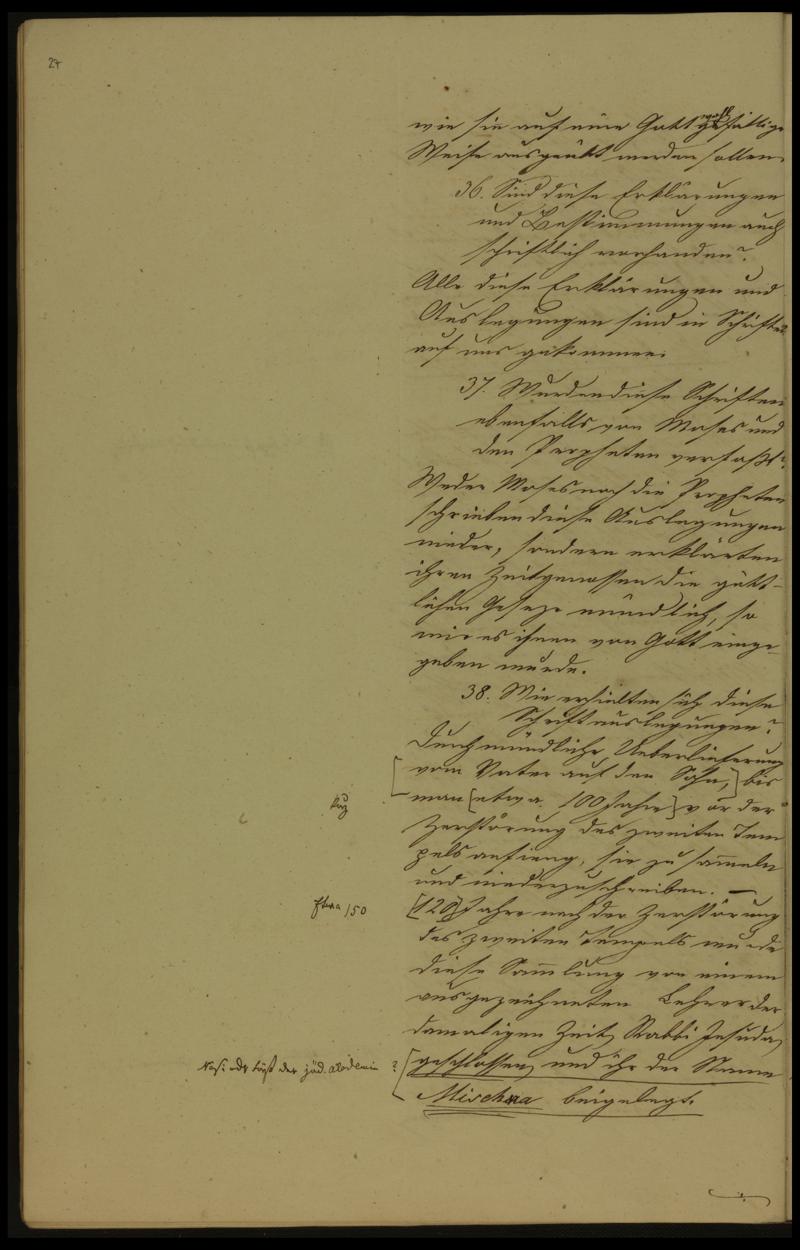 24
wie sie auf eine Gott gefällige
Weise ausgeübt werden sollen.
36. Sind diese Erklärungen
und Bestimmungen auch
schriftlich vorhanden?
Alle diese Erklärungen und
Auslegungen sind in Schriften
auf uns gekommen.
37. Wurden diese Schriften
ebenfalls von Moses und
den Propheten verfaßt?
Weder Moses noch die Propheten
schrieben diese Auslegungen
nieder, sondern erklärten
ihren Zeitgenossen die gött-
lichen Geseze mündlich, so
wie es ihnen von Gott einge-
geben wurde.
38. Wie erhielten sich diese
Schriftauslegungen?
Durch mündliche Ueberlieferung
[vom Vater auf den Sohn,] bis
man [etwa 100 Jahre] vor der
Zerstörung des zweiten Tem
pels anfieng, sie zu sammeln
und niederzuschreiben. —
[120] Jahre nach der Zerstörung
Etwa 150
des zweiten Tempels wurde
diese Sammlung von einem
ausgezeichneten Lehrer der
damaligen Zeit, Rabbi Jehuda,
[geschlossen, und ihr der Name
der jüd. Akademie ?
Mischna beigelegt.